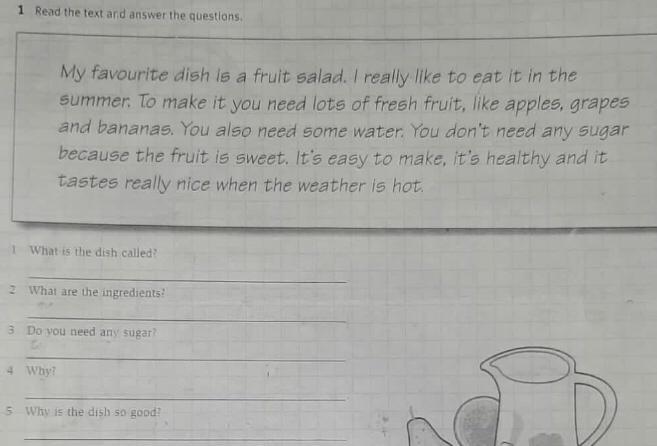 1 Read the text and answer the questions.
My favourite dish is a fruit salad. I really like to eat it in the
summer. To make it you need lots of fresh fruit, like apples, grapes
and bananas. You also need some water. You don't need any sugar
because the fruit is sweet. It's easy to make, it's healthy and it
tastes really nice when the weather is hot.
1 What is the dish called?
2 What are the ingredients?
3 Do you need any sugar?
4 Why?
5 Why is the dish so good?